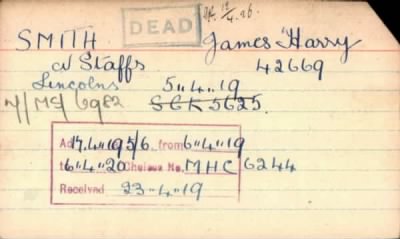 DEAD
SMITH James Harry
N Staffs 42669
Lincolns 5.4.19
N/MS/6982 SGK 5625.
Ad 17.4.19 5/6 from 6.4.19
to 6.4.20 Chelsea No. MHC 6244
Received 23.4.19